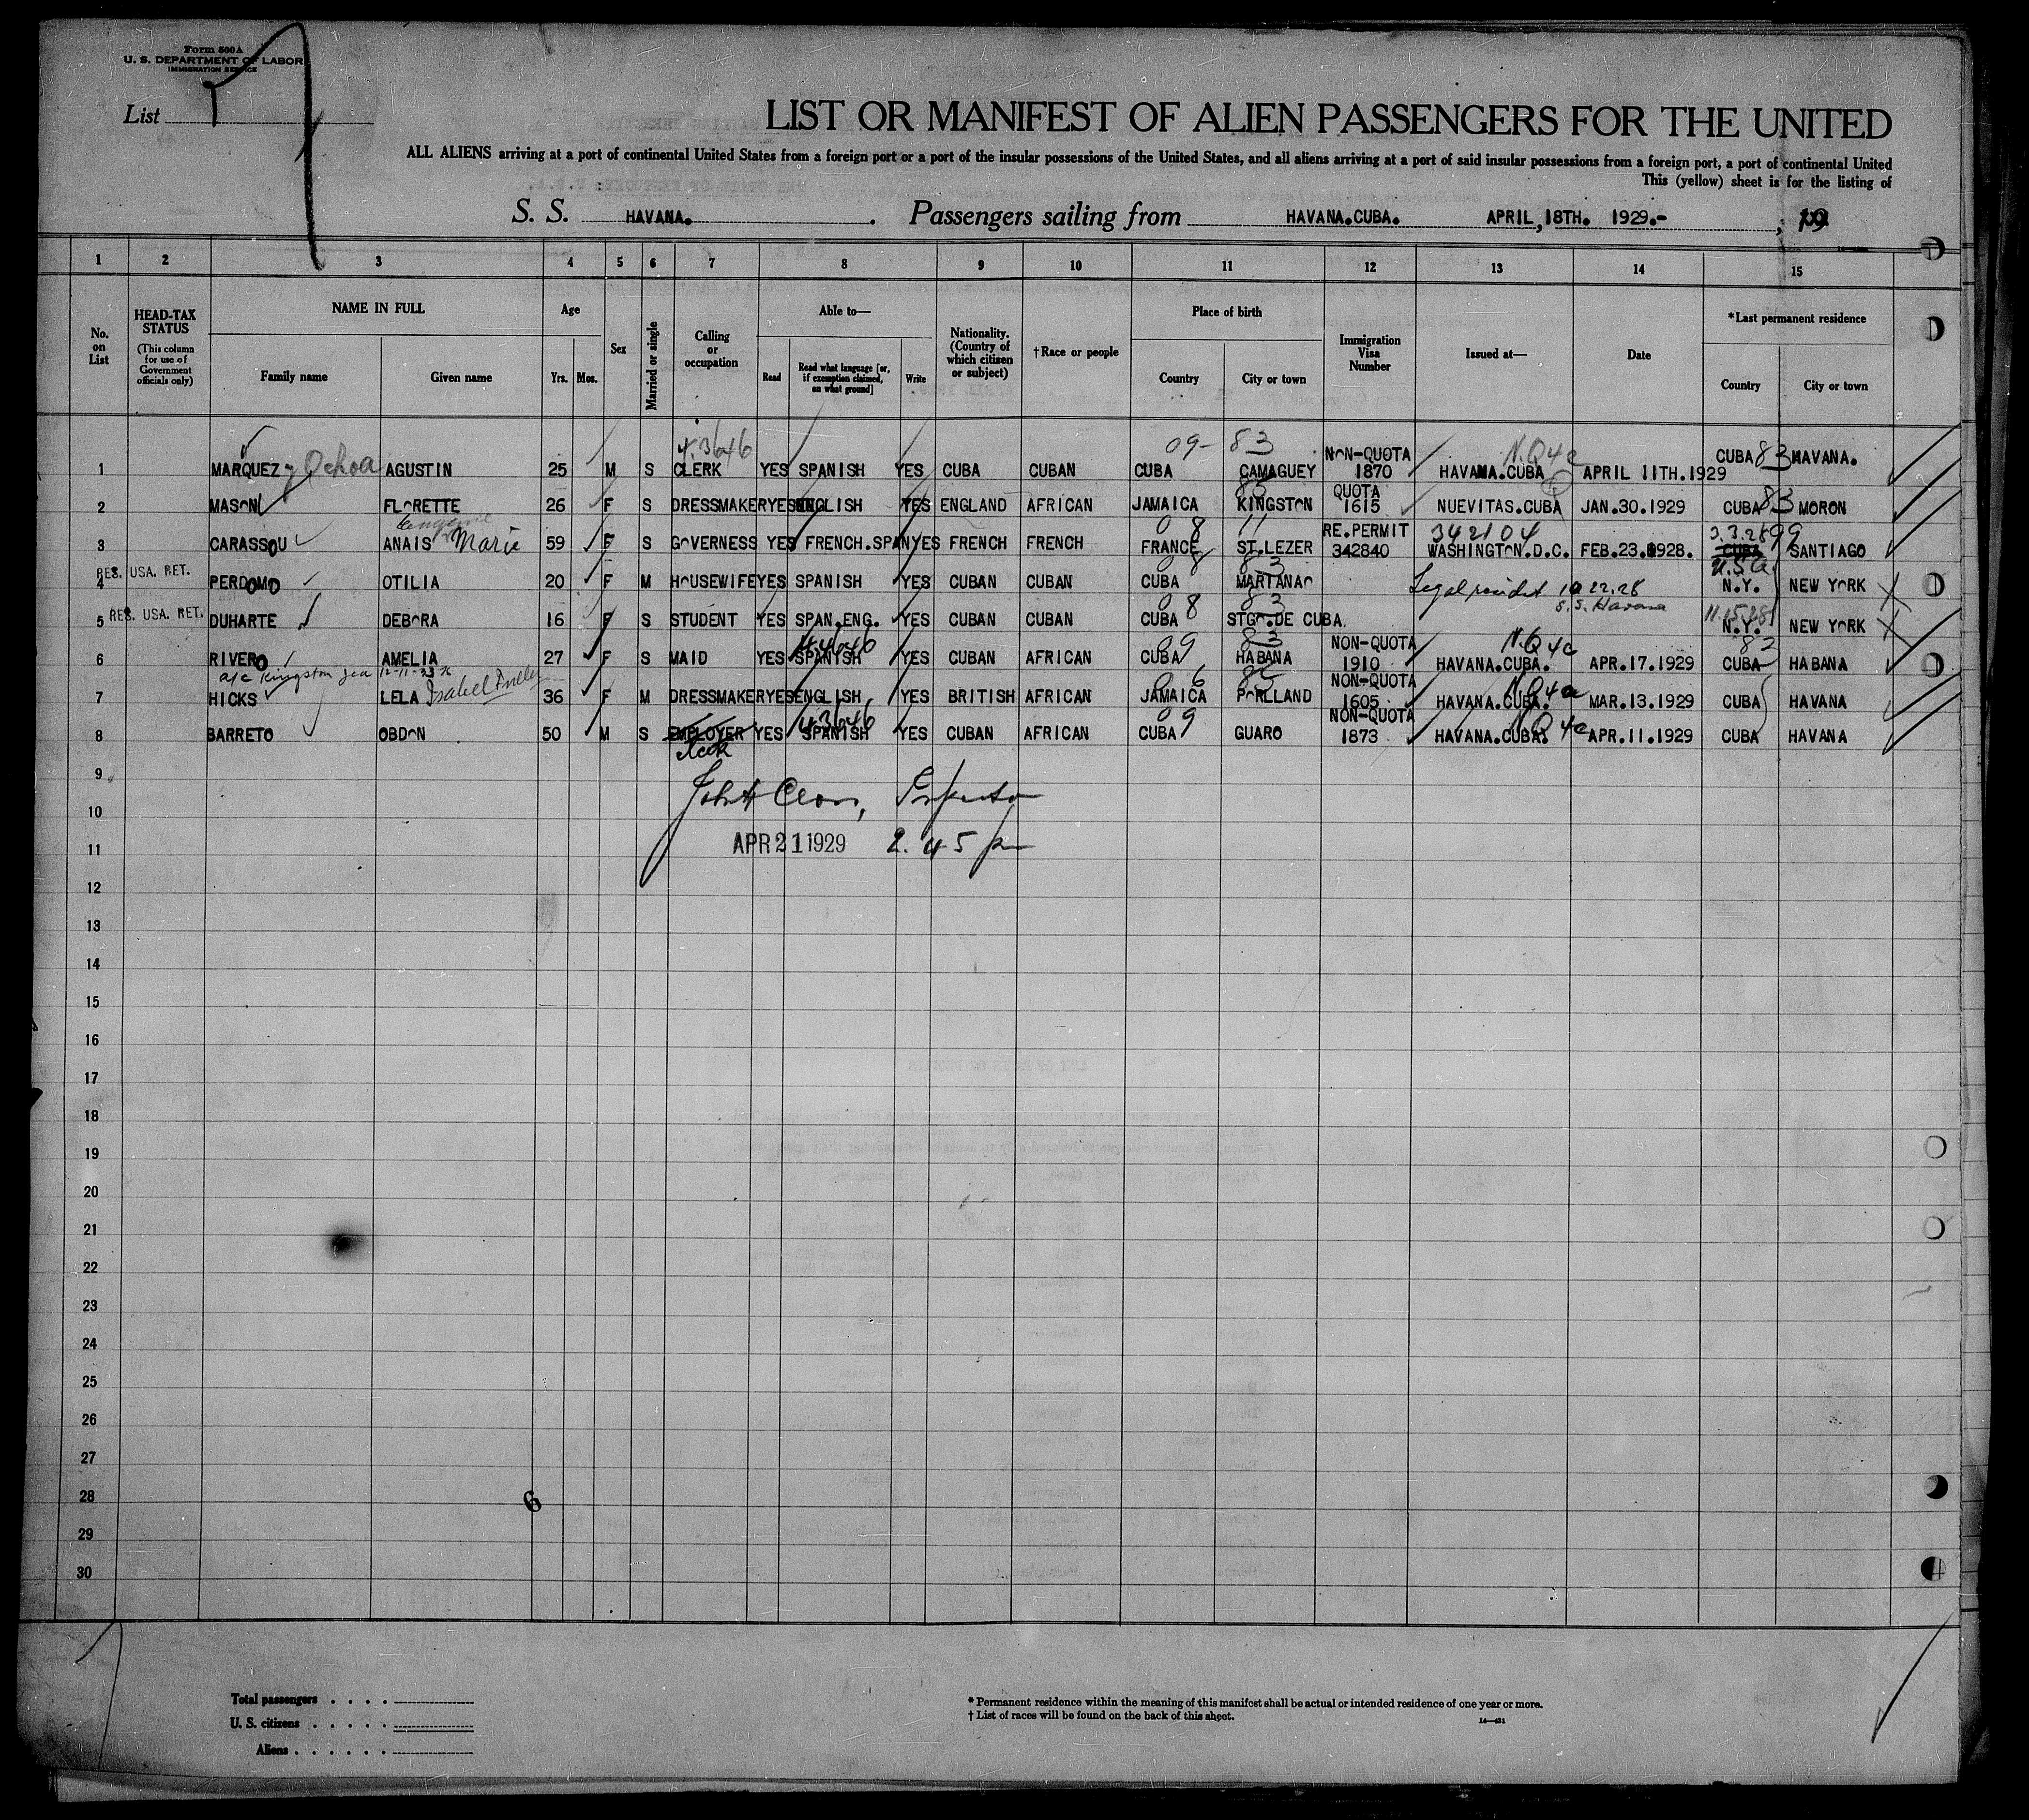 Form 500A
U. S. DEPARTMENT OF LABOR
IMMIGRATION SERVICE
List
LIST OR MANIFEST OF ALIEN PASSENGERS FOR THE UNITED
ALL ALIENS arriving at a port of continental United States from a foreign port or a port of the insular possessions of the United States, and all aliens arriving at a port of said insular possessions from a foreign port, a port of continental United
This (yellow) sheet is for the listing of
S. S. HAVANA. Passengers sailing from HAVANA.CUBA. APRIL,18TH. 1929.- , 19
1 2 3 4 5 6 7 8 9 10 11 12 13 14 15
No. on List
HEAD-TAX STATUS (This column for use of Government officials only)
NAME IN FULL
Family name Given name
Age
Yrs. Mos.
Sex
Married or single
Calling or occupation
Able to—
Read Read what language [or, if exemption claimed, on what ground] Write
Nationality. (Country of which citizen or subject)
†Race or people
Place of birth
Country City or town
Immigration Visa Number
Issued at—
Date
*Last permanent residence
Country City or town
43646 09- 83 NON-QUOTA N.Q4c
1 MARQUEZ y Ochoa AGUSTIN 25 M S CLERK YES SPANISH YES CUBA CUBAN CUBA CAMAGUEY 1870 HAVANA.CUBA APRIL 11TH.1929 CUBA 83 HAVANA.
85 QUOTA Q
2 MASON FLORETTE 26 F S DRESSMAKER YES ENGLISH YES ENGLAND AFRICAN JAMAICA KINGSTON 1615 NUEVITAS.CUBA JAN.30.1929 CUBA 83 MORON
08 11 RE.PERMIT 342104 3.3.28 99
3 CARASSOU ANAIS Marie 59 F S GOVERNESS YES FRENCH.SPAN YES FRENCH FRENCH FRANCE ST.LEZER 342840 WASHINGTON.D.C. FEB.23.1928. CUBA SANTIAGO
RES. USA. RET. 08 83 U.S.A
4 PERDOMO OTILIA 20 F M HOUSEWIFE YES SPANISH YES CUBAN CUBAN CUBA MARIANAO Legal resident 10 22.28 N.Y. NEW YORK
S.S. Havana
RES. USA. RET. 08 83 11.15.28
5 DUHARTE DEBORA 16 F S STUDENT YES SPAN.ENG. YES CUBAN CUBAN CUBA STGO.DE CUBA N.Y. NEW YORK
44646 09 83 NON-QUOTA N.Q4c 83
6 RIVERO AMELIA 27 F S MAID YES SPANISH YES CUBAN AFRICAN CUBA HABANA 1910 HAVANA.CUBA. APR.17.1929 CUBA HABANA
a/c Kingston Jca 12-11-33 NON-QUOTA N.Q4a
7 HICKS LELA Isabel 36 F M DRESSMAKER YES ENGLISH YES BRITISH AFRICAN JAMAICA PORLLAND 1605 HAVANA.CUBA. MAR.13.1929 CUBA HAVANA
43646 09 NON-QUOTA N.Q 4c
8 BARRETO OBDON 50 M S EMPLOYER YES SPANISH YES CUBAN AFRICAN CUBA GUARO 1873 HAVANA.CUBA. APR.11.1929 CUBA HAVANA
Cook
9
10
11 APR 21 1929 2.45 pm
12
13
14
15
16
17
18
19
20
21
22
23
24
25
26
27
28 6
29
30
Total passengers . . . .
U. S. citizens . . . . .
Aliens . . . . . .
* Permanent residence within the meaning of this manifest shall be actual or intended residence of one year or more.
† List of races will be found on the back of this sheet.
14—421